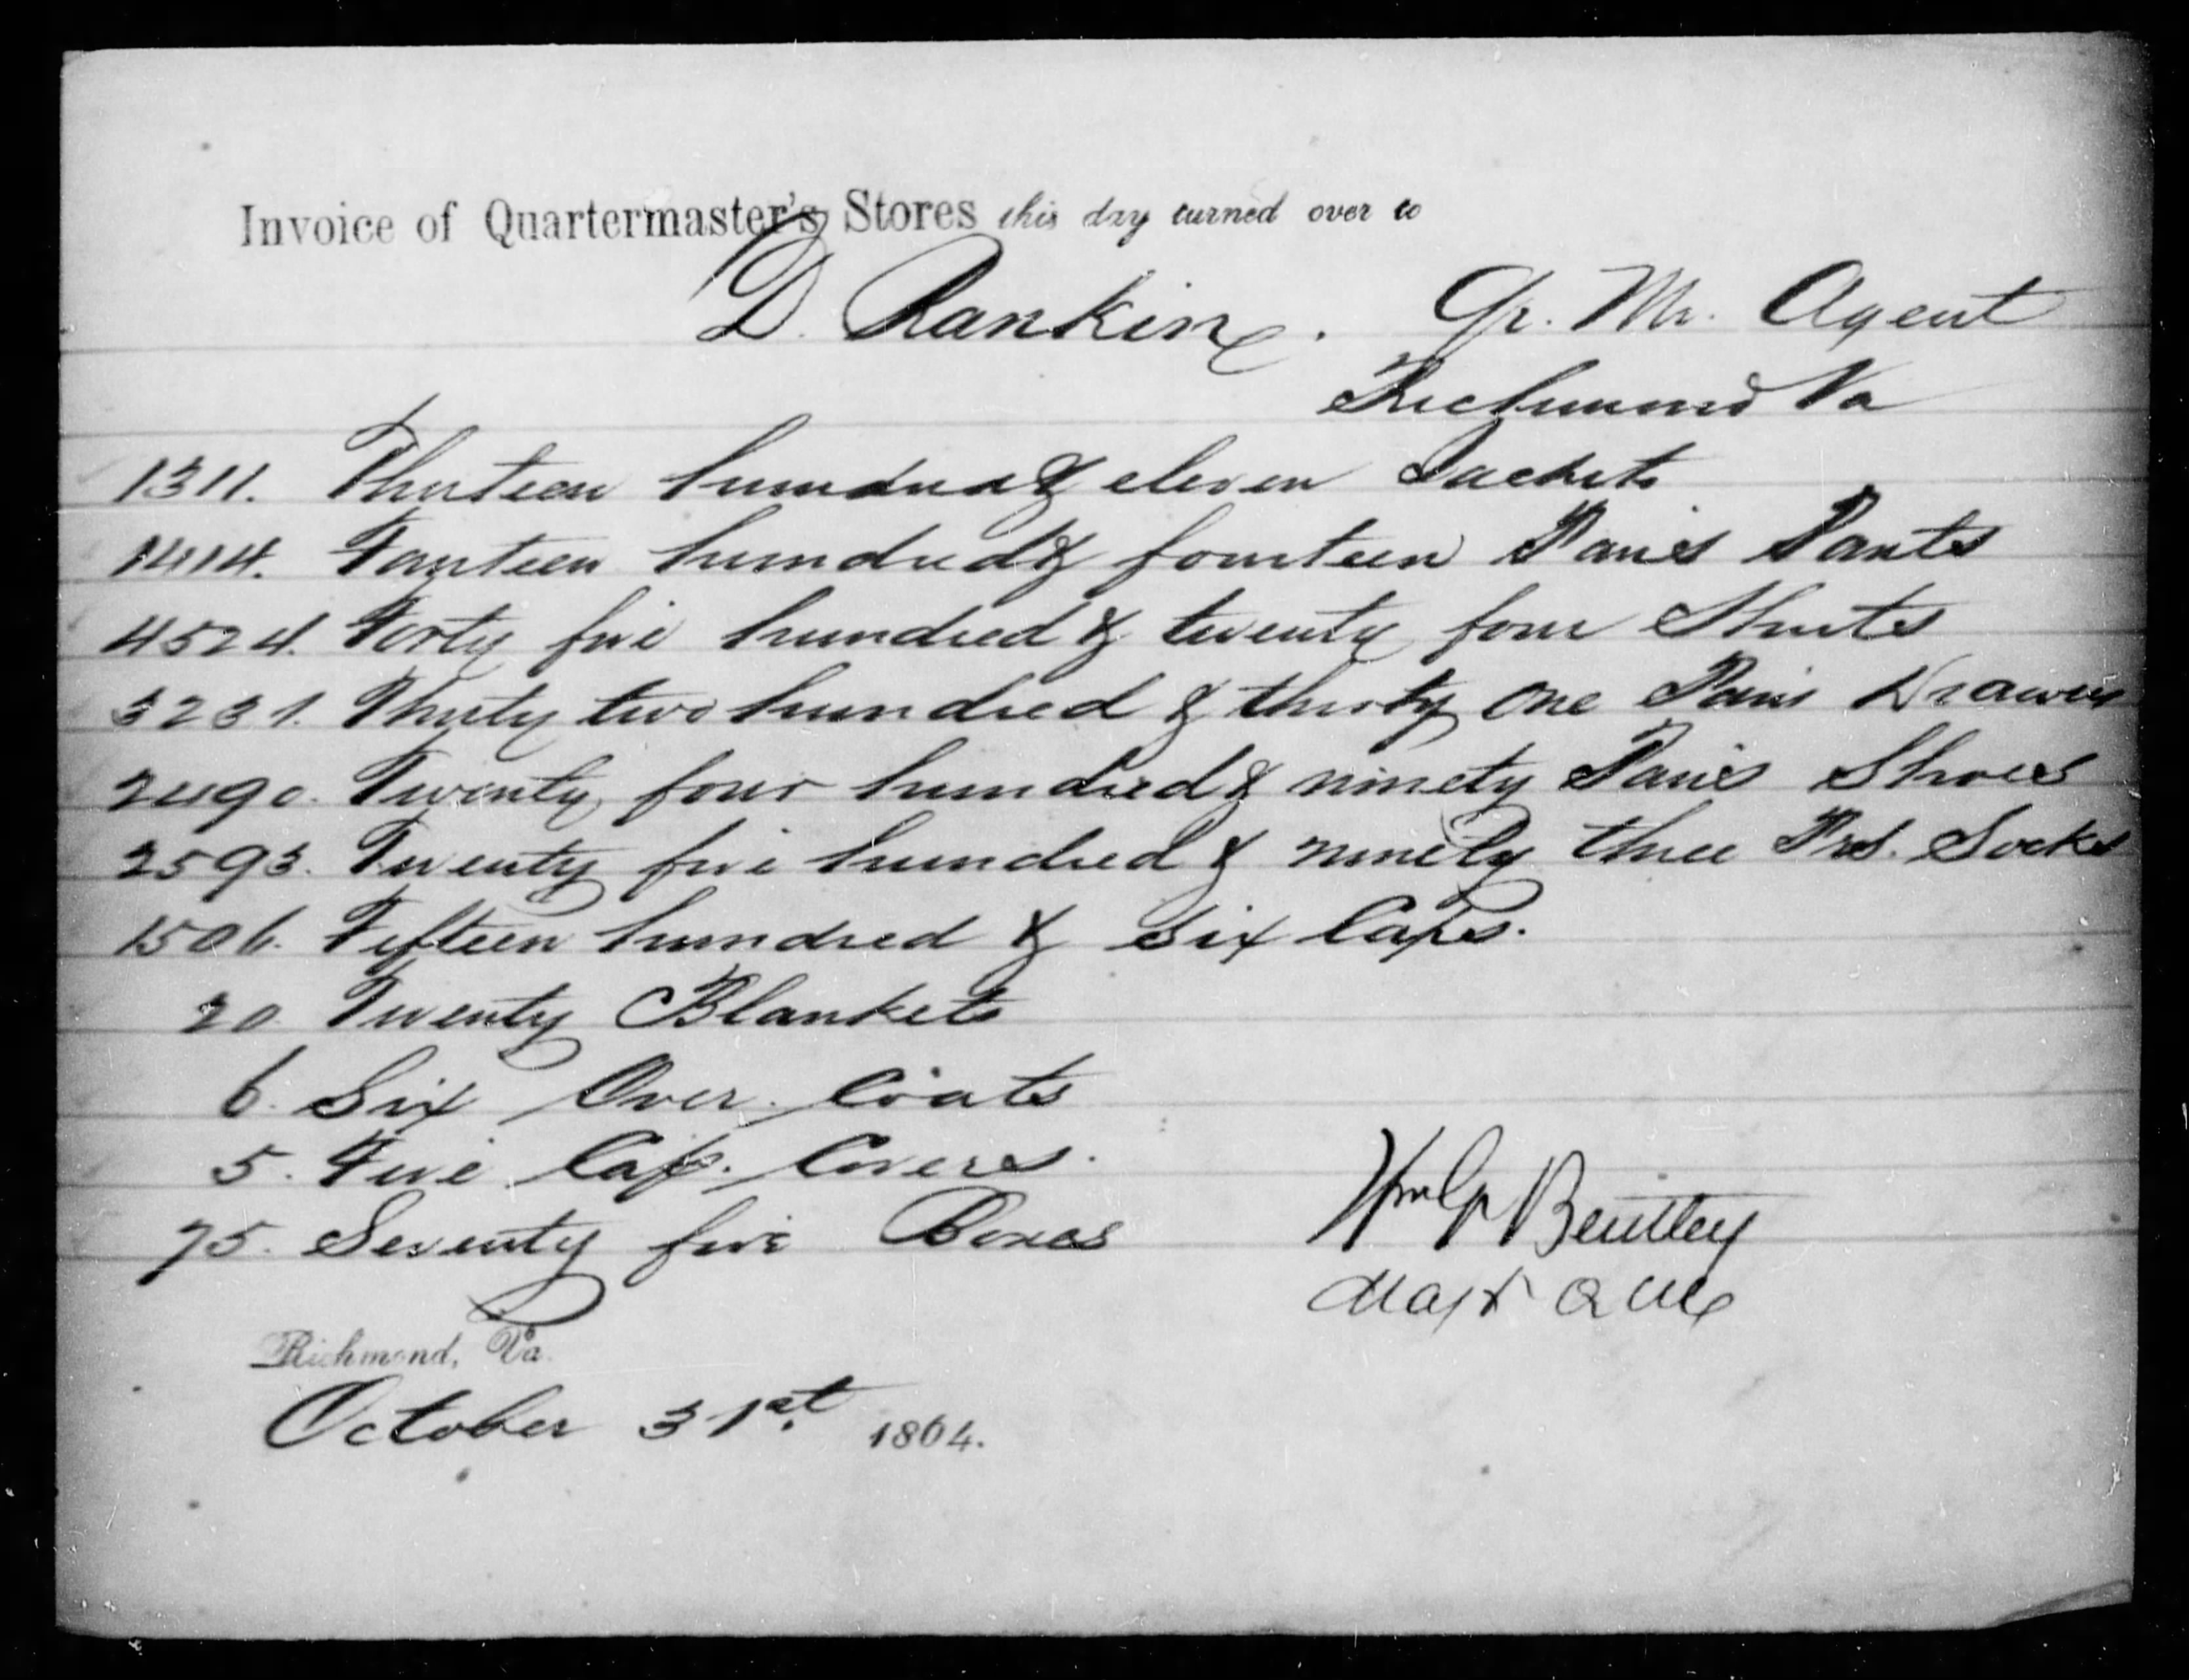 Invoice of Quartermaster's Stores this day turned over to
D. Rankin. Qr. Mr. Agent
Richmond Va
1311. Thirteen hundred & eleven Jackets
1414. Fourteen hundred & fourteen Pairs Pants
4524. Forty five hundred & twenty four Shirts
3231. Thirty two hundred & thirty one Pairs Drawers
2490. Twenty four hundred & ninety Pairs Shoes
2593. Twenty five hundred & ninety three Prs. Socks
1506. Fifteen hundred & six Caps.
20. Twenty Blankets
6. Six Over. Coats
5. Five Cap. Covers.
75. Seventy five Boxes
Wm G Bentley
Maj & QM
Richmond, Va.
October 31st. 1864.